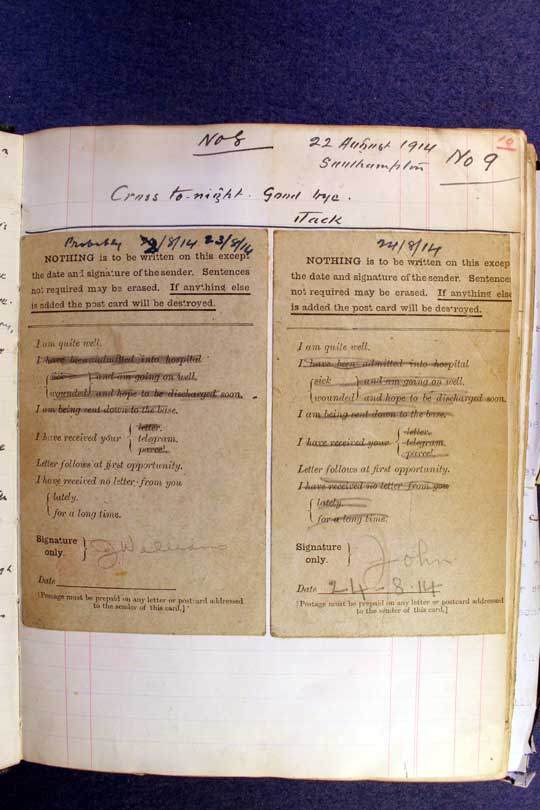 10
No 8
22 August 1914
Southampton
No 9
Cross to-night. Good bye.
Jack
Probably 22/8/14 23/8/14
NOTHING is to be written on this except
the date and signature of the sender. Sentences
not required may be erased. If anything else
is added the post card will be destroyed.
I am quite well.
I have been admitted into hospital
sick and am going on well.
wounded and hope to be discharged soon.
I am being sent down to the base.
letter.
I have received your telegram.
parcel.
Letter follows at first opportunity.
I have received no letter from you
lately.
for a long time.
Signature
only.
J Williams
Date
[Postage must be prepaid on any letter or postcard addressed
to the sender of this card.]
24/8/14
NOTHING is to be written on this except
the date and signature of the sender. Sentences
not required may be erased. If anything else
is added the post card will be destroyed.
I am quite well.
I have been admitted into hospital
sick and am going on well.
wounded and hope to be discharged soon.
I am being sent down to the base.
letter.
I have received your telegram.
parcel.
Letter follows at first opportunity.
I have received no letter from you
lately.
for a long time.
Signature
only.
John
Date 24-8-14
[Postage must be prepaid on any letter or postcard addressed
to the sender of this card.]